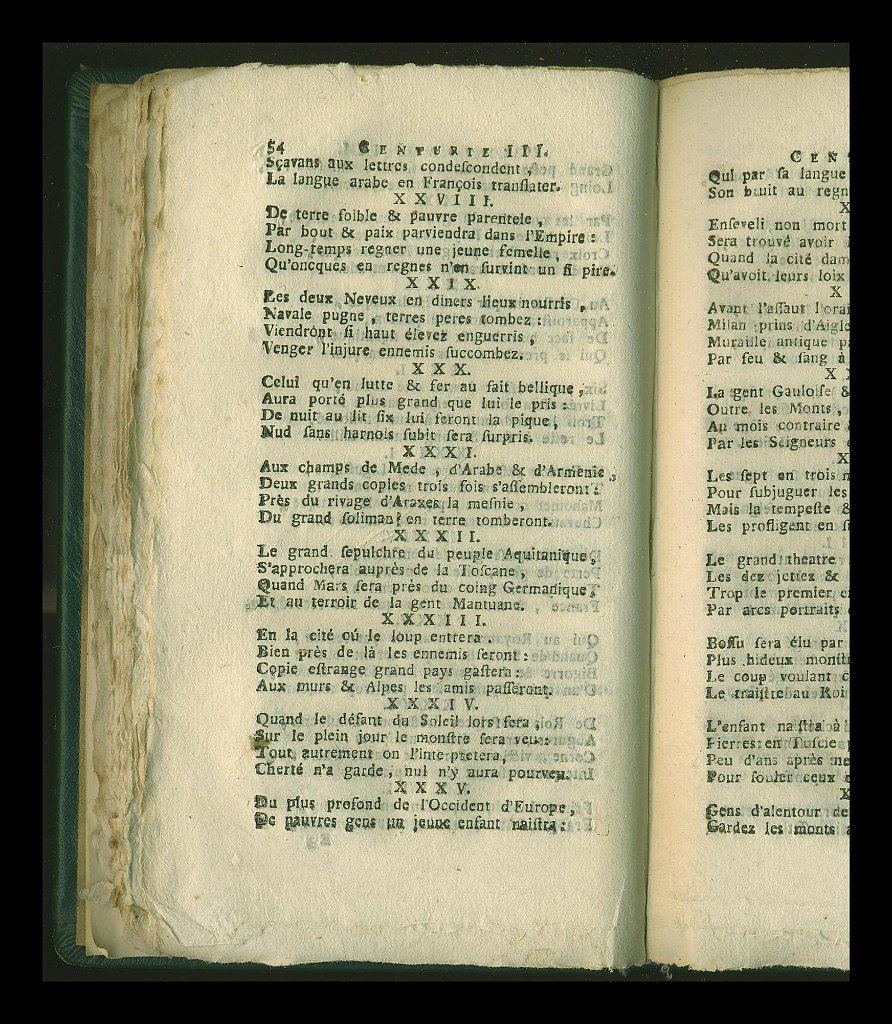 54 CENTURIE III.
Sçavans aux lettres condeſcondent,
La langue arabe en François tranſlater.
XXVIII.
De terre foible & pauvre parentele,
Par bout & paix parviendra dans l'Empire :
Long-temps regner une jeune femelle,
Qu'oncques en regnes n'en ſurvint un ſi pire.
XXIX.
Les deux Neveux en diners lieux nourris,
Navale pugne, terres peres tombez :
Viendront ſi haut élevez enguerris,
Venger l'injure ennemis ſuccombez.
XXX.
Celui qu'en lutte & fer au fait bellique,
Aura porté plus grand que lui le pris :
De nuit au lit ſix lui feront la pique,
Nud ſans harnois ſubit ſera ſurpris.
XXXI.
Aux champs de Mede, d'Arabe & d'Armenie,
Deux grands copies trois fois s'aſſembleront :
Près du rivage d'Araxes la meſnie,
Du grand ſoliman en terre tomberont.
XXXII.
Le grand ſepulchre du peuple Aquitanique,
S'approchera auprès de la Toſcane,
Quand Mars ſera près du coing Germanique,
Et au terroir de la gent Mantuane.
XXXIII.
En la cité oú le loup entrera
Bien près de là les ennemis ſeront :
Copie eſtrange grand pays gaſtera :
Aux murs & Alpes les amis paſſeront.
XXXIV.
Quand le défant du Soleil lors ſera,
Sur le plein jour le monſtre ſera veu :
Tout autrement on l'inte pretera,
Cherté n'a garde, nul n'y aura pourveu.
XXXV.
Du plus profond de l'Occident d'Europe,
De pauvres gens un jeune enfant naiſtra :
CEN
Qui par ſa langue
Son bruit au regn
X
Enſeveli non mort
Sera trouvé avoir
Quand la cité dam
Qu'avoit leurs loix
X
Avant l'aſſaut l'orai
Milan prins d'Aigle
Muraille antique p
Par feu & ſang à
X
La gent Gauloiſe &
Outre les Monts,
Au mois contraire
Par les Seigneurs
X
Les ſept en trois m
Pour ſubjuguer les
Mais la tempeſte &
Les profligent en
Le grand theatre
Les dez jettez &
Trop le premier e
Par arcs portraits
Boſſu ſera élu par
Plus hideux monſt
Le coup voulant c
Le traiſtre au Roi
L'enfant naiſtra à
Pierres en Tuſcie
Peu d'ans après
Pour fouler ceux
X
Gens d'alentour de
Gardez les monts